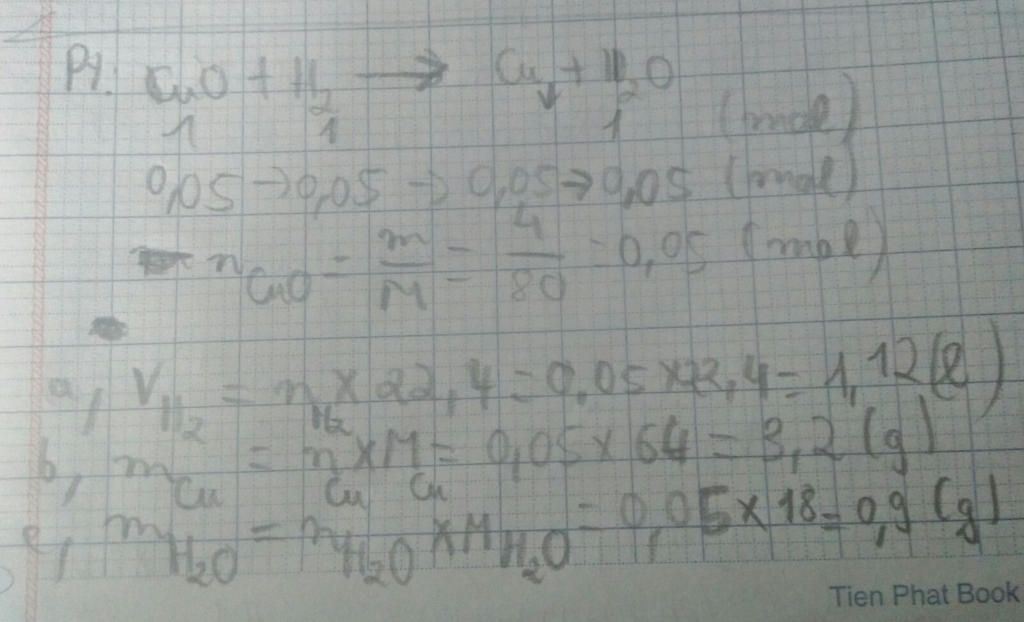 Pt: CuO + H₂ → Cu↓ + H₂O
1 1 1 (mol)
0,05 → 0,05 → 0,05 → 0,05 (mol)
n CuO = m/M = 4/80 = 0,05 (mol)
a, V H₂ = n H₂ × 22,4 = 0,05 × 22,4 = 1,12 (l)
b, m Cu = n Cu × M Cu = 0,05 × 64 = 3,2 (g)
c, m H₂O = n H₂O × M H₂O = 0,05 × 18 = 0,9 (g)
Tien Phat Book